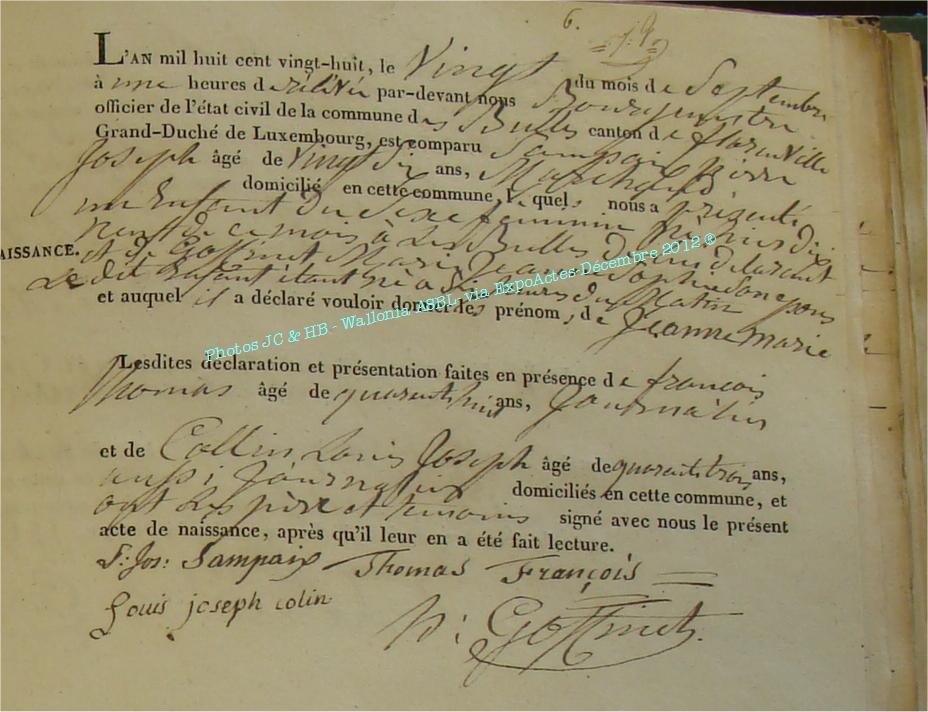 6.
L'AN mil huit cent vingt-huit, le Vingt du mois de Septembre
à une heures de rélévée par-devant nous Bourgmestre
officier de l'état civil de la commune des Bulles canton de florenville
Grand-Duché de Luxembourg, est comparu Sampaix pierre
Joseph âgé de vingt Six ans, Marchand
domicilié en cette commune, le quel nous a présenté
un Enfant du Sexe féminin
neuf de ce mois à Les Bulles
et de Goffinet Marie
NAISSANCE.
Le dit Enfant étant né à heures du Matin
et auquel il a déclaré vouloir donner les prénom, de
Jeanne marie
Photos JC & HB - Wallonia ASBL- via ExpoActes Décembre 2012 ®
Lesdites déclaration et présentation faites en présence de françois
thomas âgé de quarant huit ans, Journalier
et de Collin Louis Joseph âgé de quarante trois ans,
aussi Journalier domiciliés en cette commune, et
ont les père et temoins signé avec nous le présent
acte de naissance, après qu'il leur en a été fait lecture.
P: Jos: Sampaix Thomas François
Louis joseph colin
Goffinet